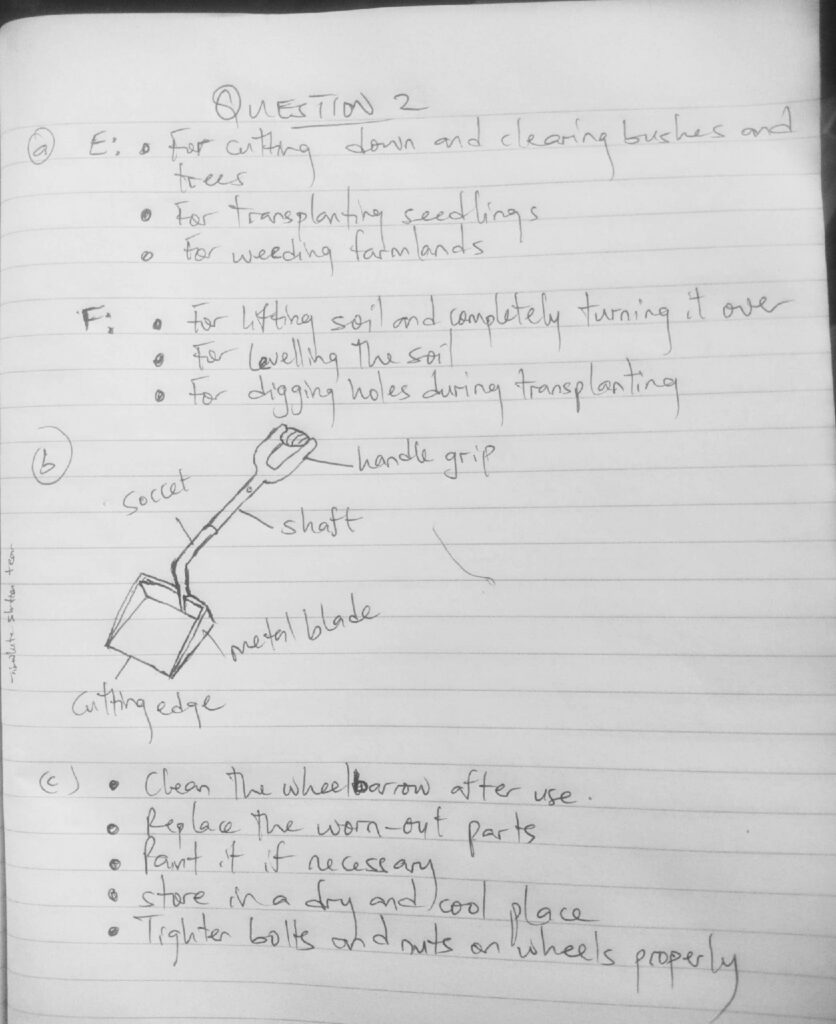 QUESTION 2
(a) E: • For cutting down and clearing bushes and
trees
• For transplanting seedlings
• For weeding farmlands
F: • For lifting soil and completely turning it over
• For levelling the soil
• For digging holes during transplanting
(b)
handle grip
soccet
shaft
metal blade
Cutting edge
(c) • Clean the wheelbarrow after use.
• Replace the worn-out parts
• Paint it if necessary
• store in a dry and cool place
• Tighter bolts and nuts on wheels properly